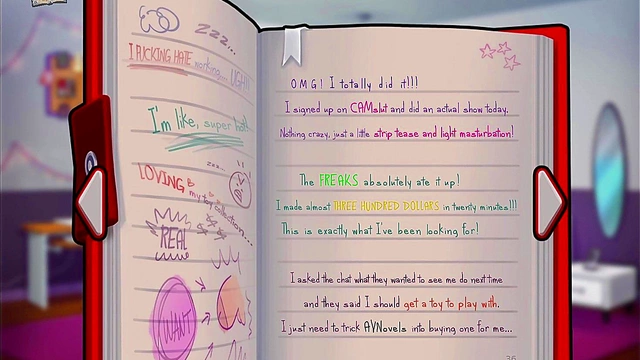 zzz...
I FUCKING HATE working... UGH!!
I'm like, super hot!
zzz...
LOVING my toy collection...
REAL
WANT
OMG! I totally did it!!!
I signed up on CAMslut and did an actual show today,
Nothing crazy, just a little strip tease and light masturbation!
The FREAKS absolutely ate it up!
I made almost THREE HUNDRED DOLLARS in twenty minutes!!!
This is exactly what I've been looking for!
I asked the chat what they wanted to see me do next time
and they said I should get a toy to play with.
I just need to trick AVNovels into buying one for me...
36